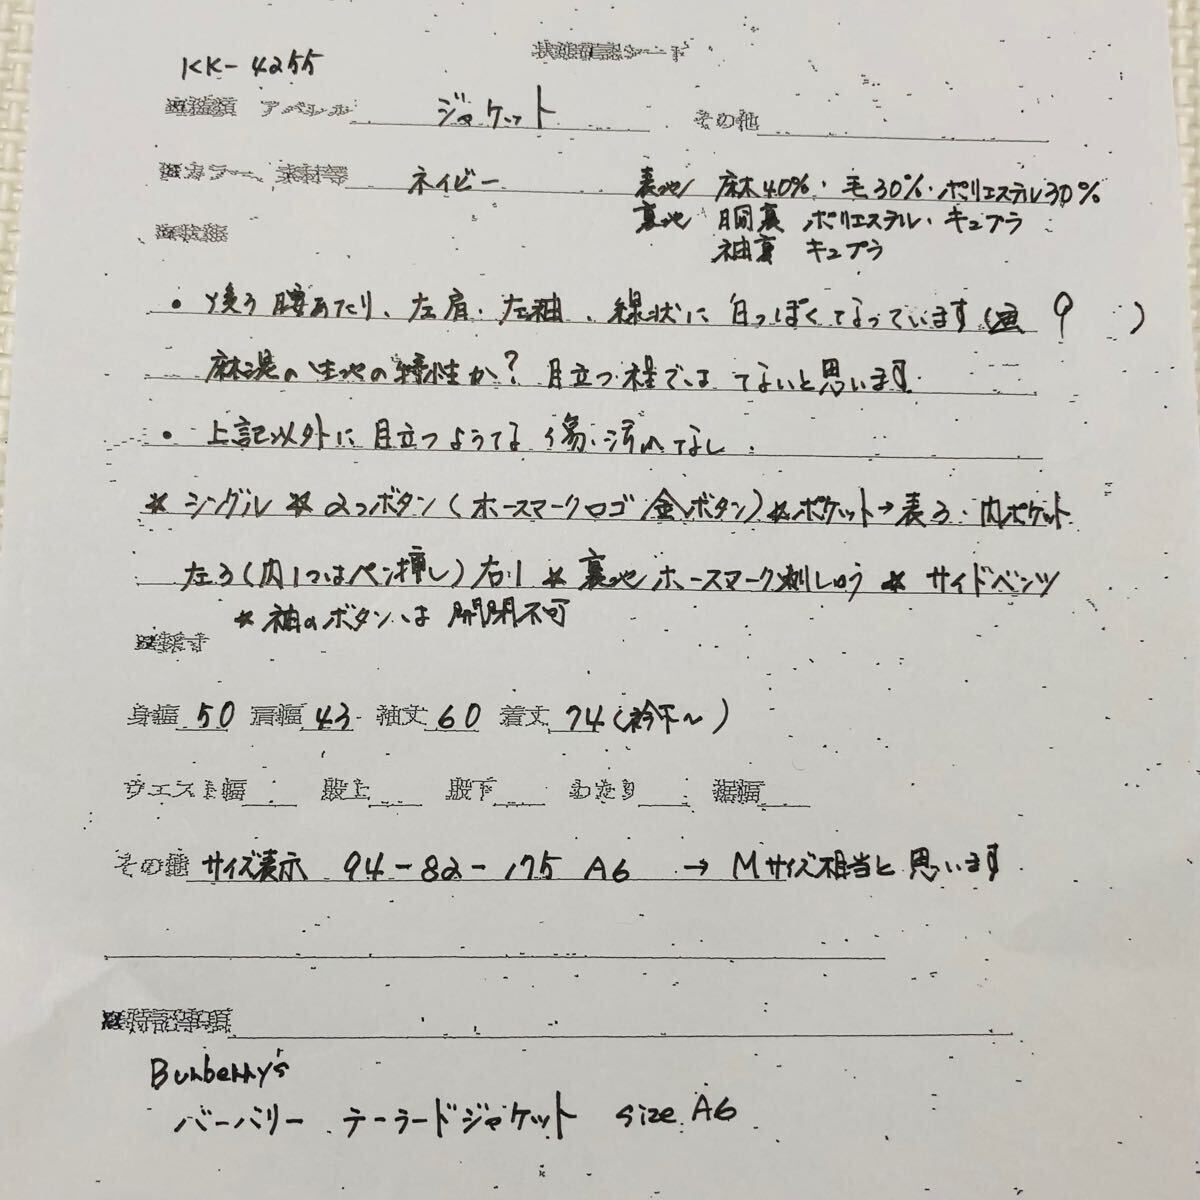 状態確認シート
KK-4255
種類 アパレル ジャケット その他
カラー、素材等 ネイビー 表地 麻40%・毛30%・ポリエステル30%
裏地 胴裏 ポリエステル・キュプラ
状態
袖裏 キュプラ
・後ろ腰あたり、左肩・左袖、線状に白っぽくなっています(画 9 )
麻混の生地の特性か?目立つ程ではないと思います
・上記以外に目立つような傷・汚れなし.
* シングル * 2つボタン(ホースマークロゴ 金ボタン) *ポケット→表3・内ポケット
左3(内1つはペン挿し)右1 * 裏地ホースマーク刺しゅう * サイドベンツ
* 袖のボタンは開閉不可
採寸
身幅 50 肩幅 43 袖丈 60 着丈 74(衿下~)
ウエスト幅 股上 股下 わたり 裾幅
その他 サイズ表示 94-82-175 A6 → Mサイズ相当と思います
特記事項
Burberry's
バーバリー テーラードジャケット size A6